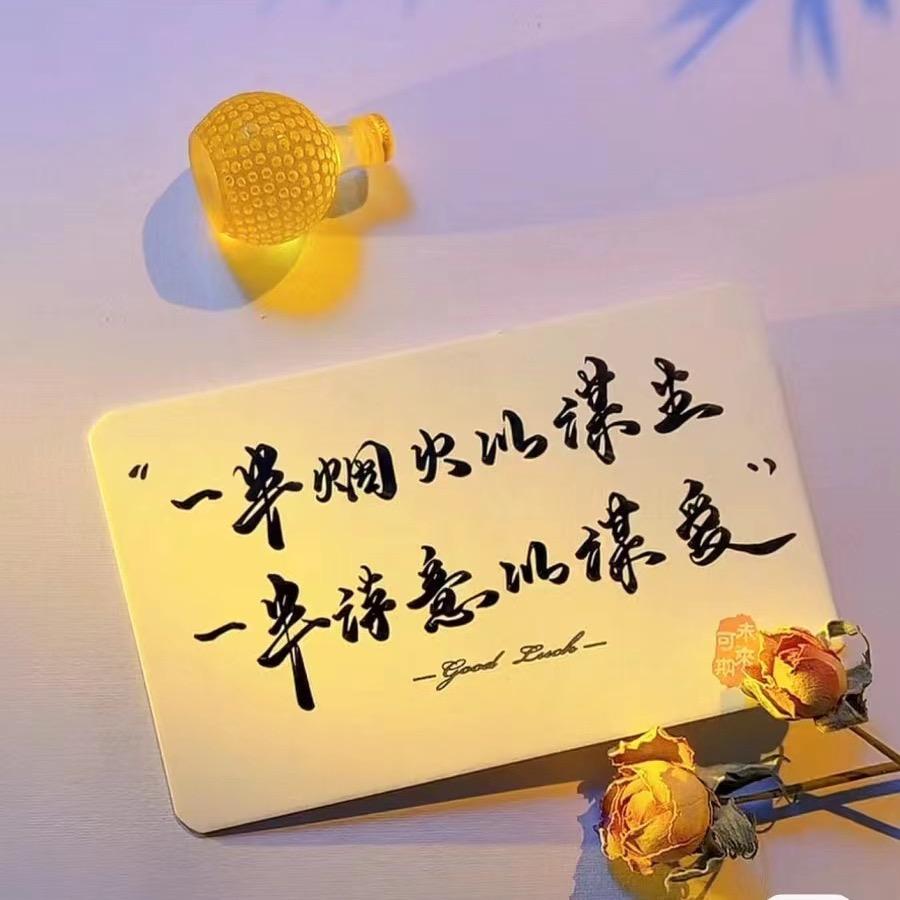 “一半烟火以谋尘
一半诗意以谋爱”
—Good Luck—
未来
可期